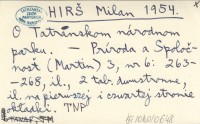 HIRŠ Milan 1954.
O Tatranskom národnom
parku. — Príroda a Spoloč-
nosť (Martin) 3, nr 6: 263-
-268, il., 2 tabl. dwustronne,
il. na pierwszej i czwartej stronie
okładki. TNP